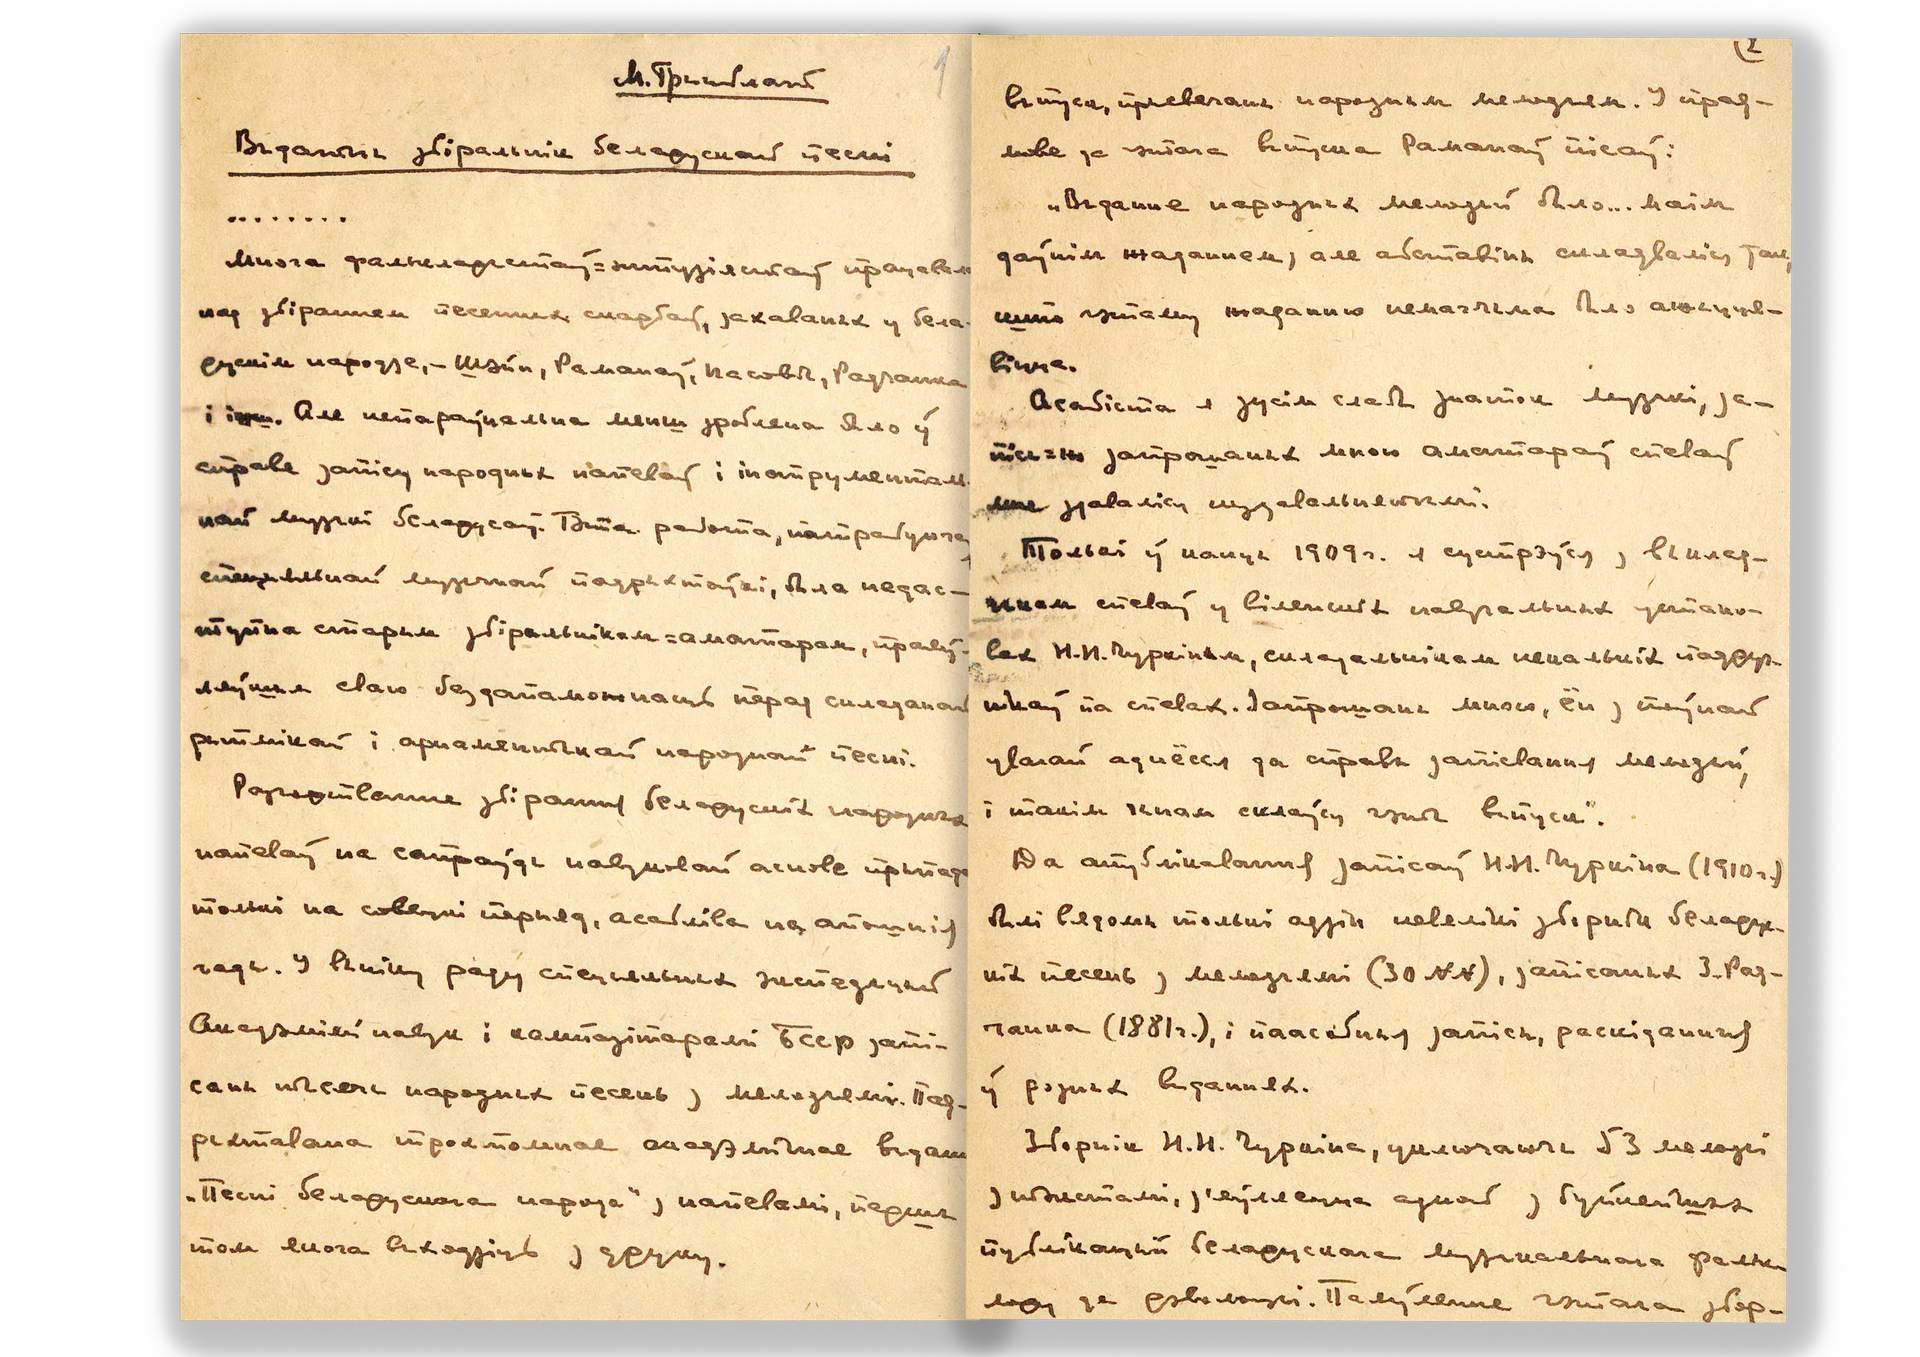 1
М. Грынблат
Выдатны збіральнік беларускай песні
........
Многа фалькларыстаў=энтузіястаў працавала
над збіраннем песенных скарбаў, захаваных у бела-
рускім народзе,– Шэйн, Раманаў, Насовіч, Радчанка
і інш. Але непараўнальна менш зроблена было ў
справе запісу народных напеваў і інструменталь-
най музыкі беларусаў. Гэта работа, патрабуючая
спецыяльнай музычнай падрыхтоўкі, была недас-
тупна старым збіральнікам=аматарам, праяў-
ляўшым сваю бездапаможнасць перад складанай
рытмікай і арнаментыкай народнай песні.
Разгортванне збірання беларускіх народных
напеваў на сапраўды навуковай аснове прыпадае
толькі на совецкі перыяд, асабліва на апошнія
гады. У выніку раду спецыяльных экспедыцый
Акадэміяй навук і кампазітарамі БССР запі-
саны тысячы народных песень з мелодыямі. Пад-
рыхтавана трохтомнае акадэмічнае выданне
„Песні беларускага народа" з напевамі, першы
том якога выходзіць з друку.
(2
выпуск, прысвечаны народным мелодыям. У прад-
мове да гэтага выпуска Раманаў пісаў:
„Выданне народных мелодый было... маім
даўнім жаданнем, але абставіны складваліся так,
што гэтаму жаданню немагчыма было ажыцця-
віцца.
Асабіста я зусім слабы знаток музыкі, за-
пісы=жа запрошаных мною аматараў спеваў
мне здаваліся нездавальняючымі.
Толькі ў канцы 1909 г. я сустрэўся з выклад-
чыкам спеваў у віленскіх навучальных устано-
вах Н.Н. Чуркіным, складальнікам некалькіх падруч-
нікаў па спевах. Запрошаны мною, ён з поўнай
увагай аднёсся да справы запісвання мелодый,
і такім чынам склаўся гэты выпуск".
Да апублікавання запісаў Н.Н. Чуркіна (1910 г.)
былі вядомы толькі адзін невялікі зборнік беларус-
кіх песень з мелодыямі (30 №№), запісаных З. Рад-
чанка (1881 г.), і паасобныя запісы, раскіданныя
ў розных выданнях.
Зборнік Н.Н. Чуркіна, уключаючы 53 мелодыі
з тэкстамі, з'яўляецца адной з буйнейшых
публікацый беларускага музыкальнага фальк-
лору да рэволюцыі. Паяўленне гэтага збор-